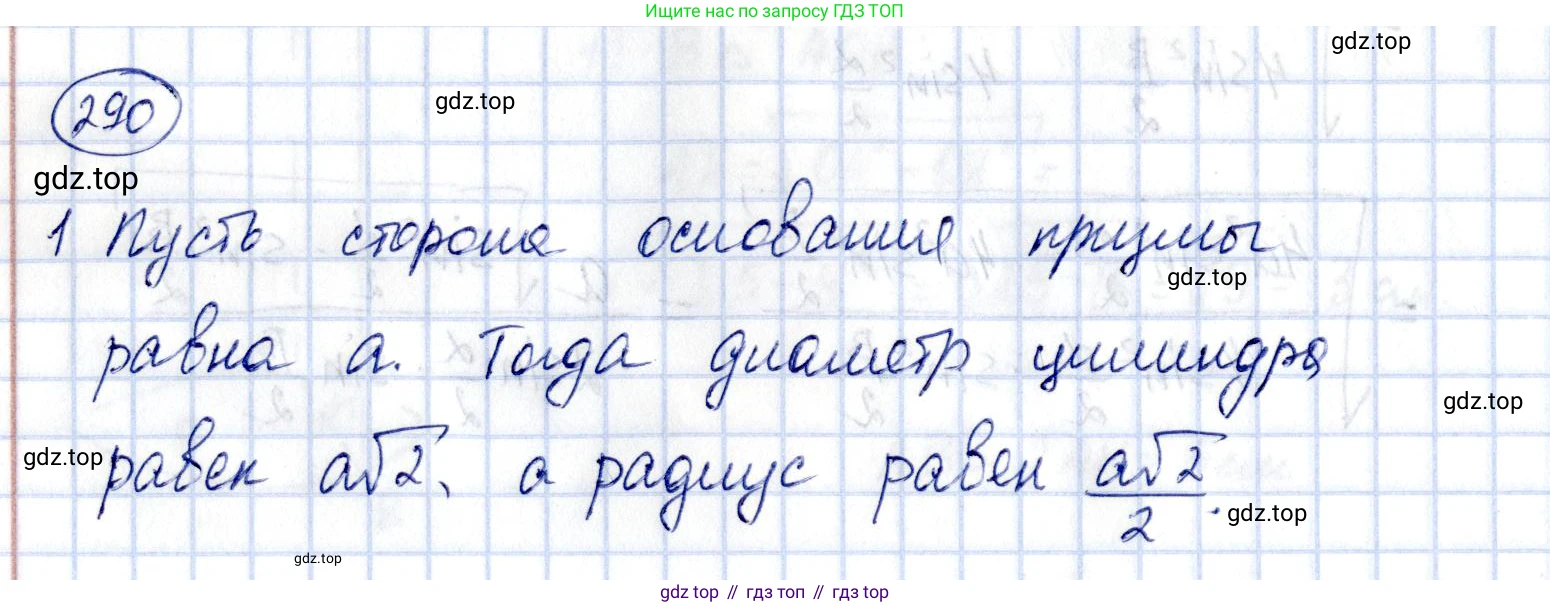 Ищите нас по запросу ГДЗ ТОП
gdz.top
290
gdz.top
gdz.top
1 Пусть сторона основания призмы
gdz.top
равна a. Тогда диаметр цилиндра
gdz.top
gdz.top
равен a√2, а радиус равен a√2/2.
gdz.top
gdz.top
gdz top // гдз топ // гдз top